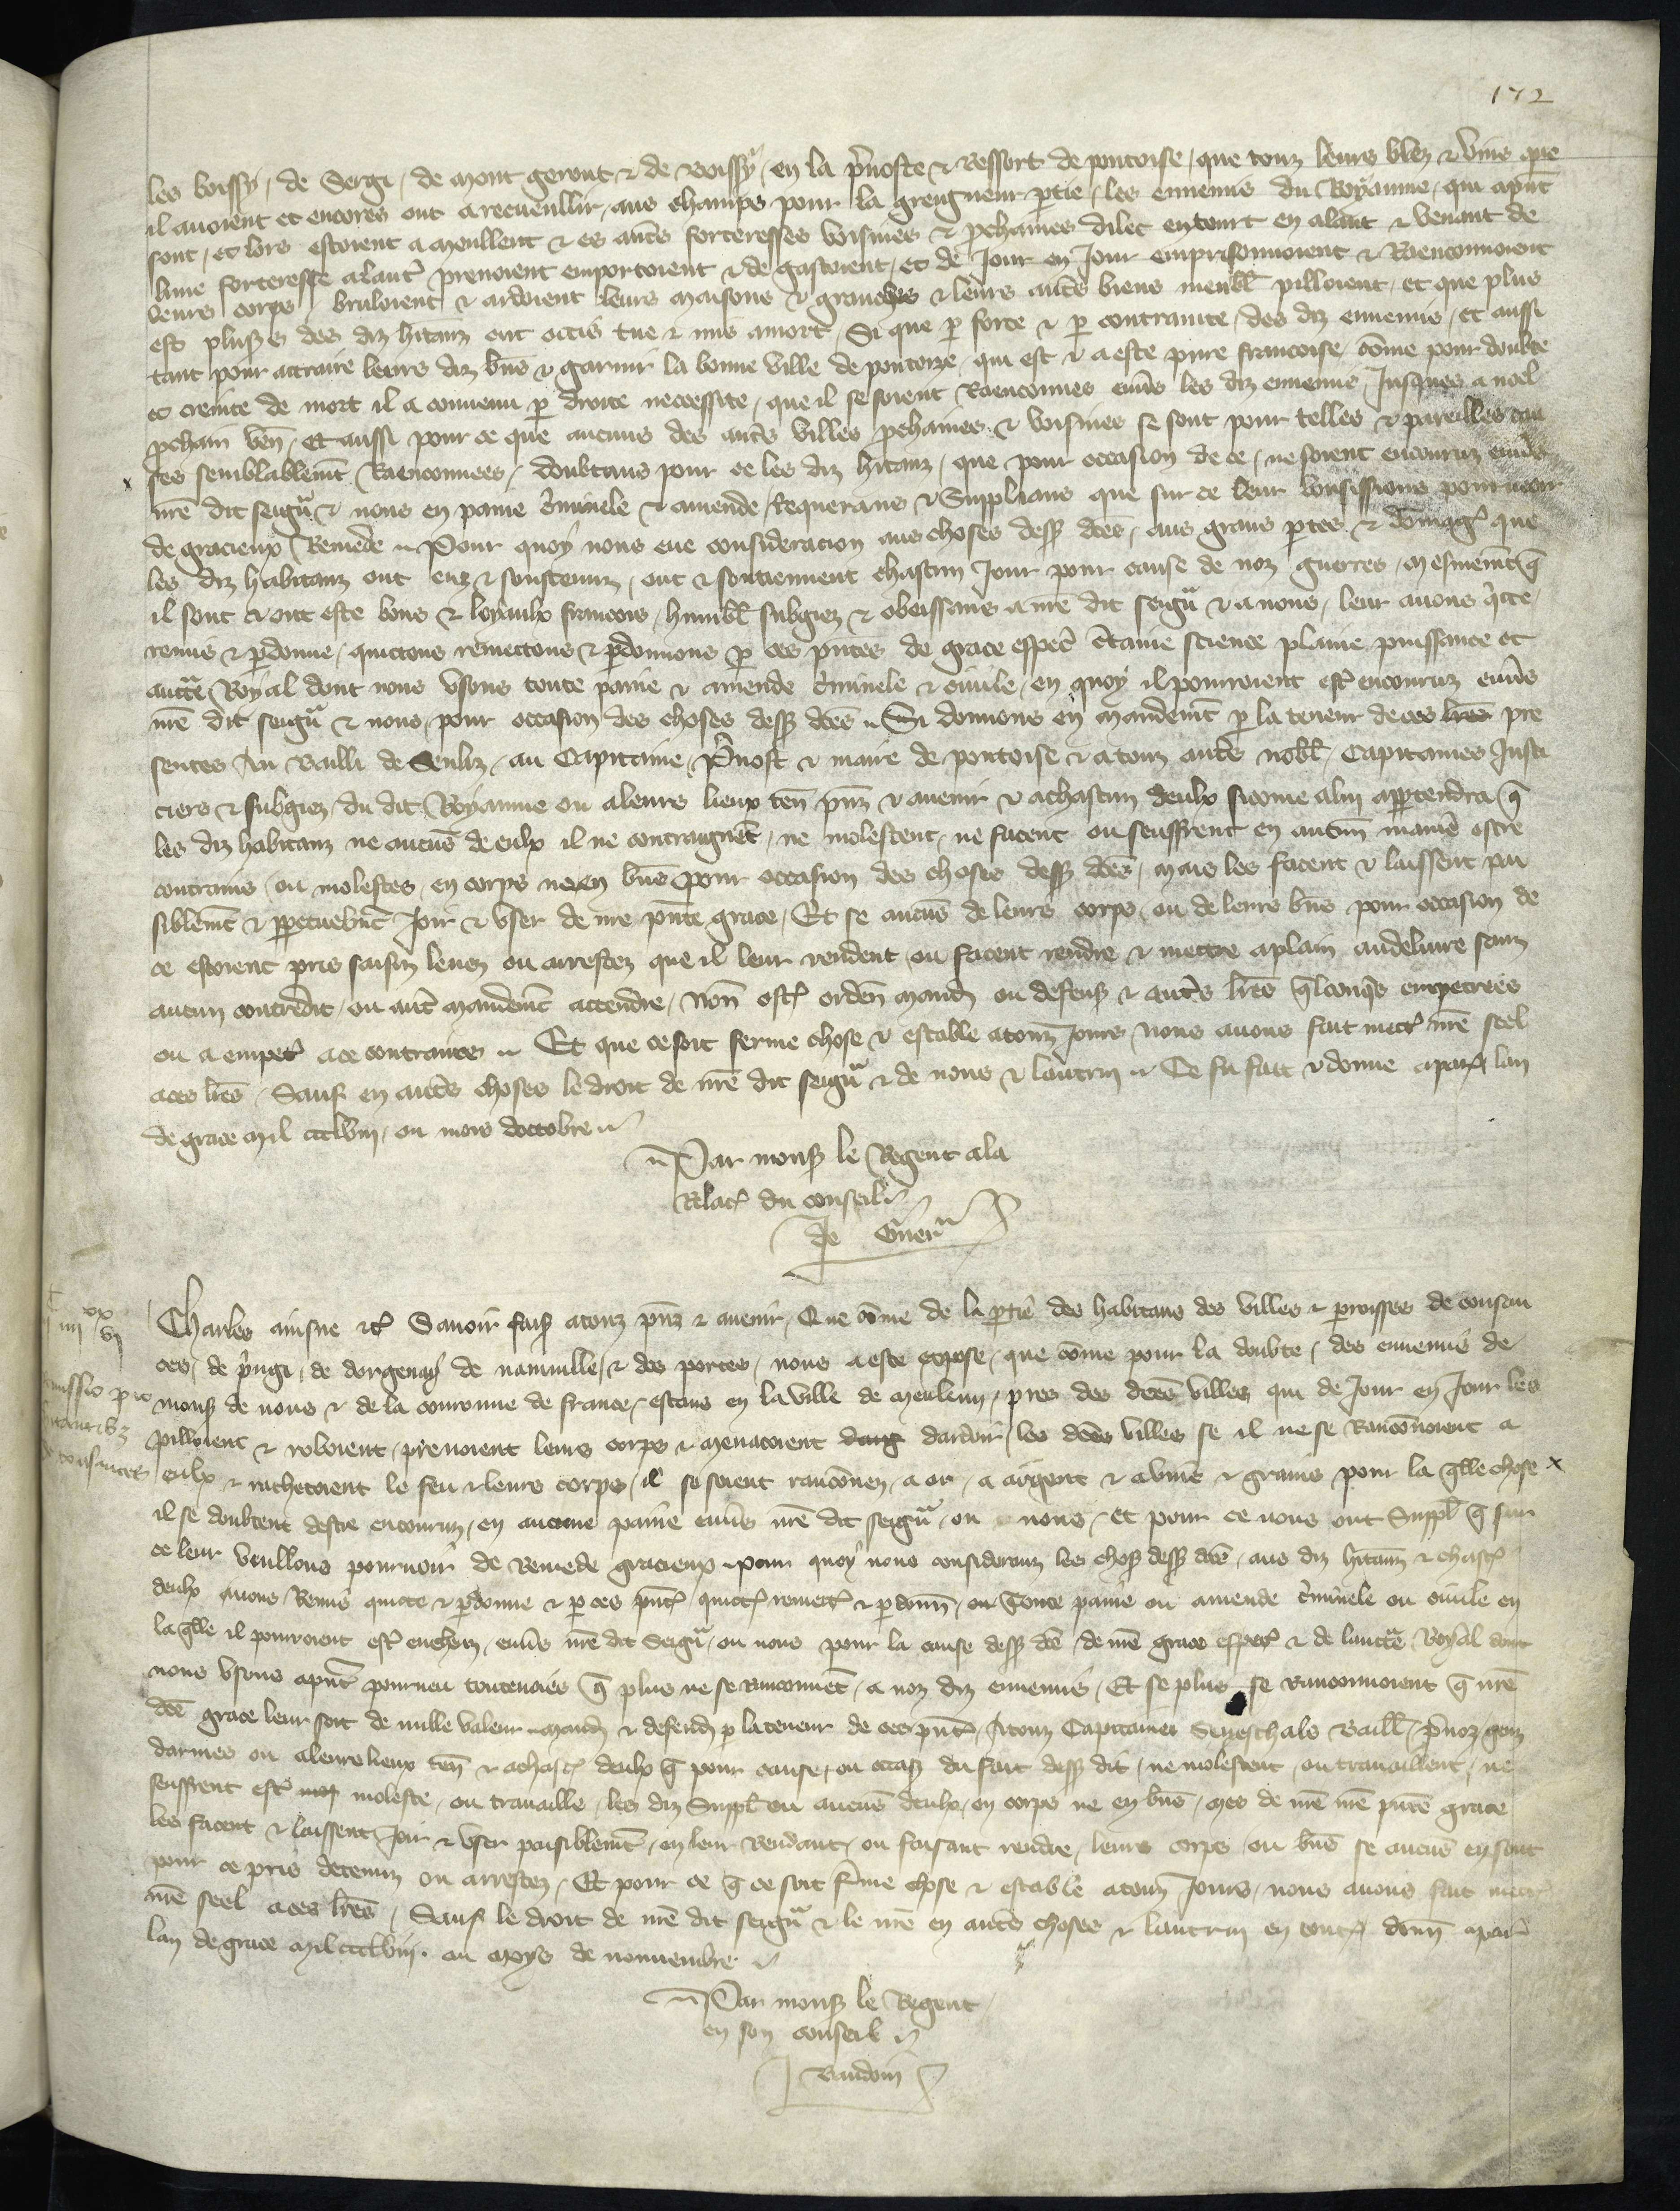 172
les boissy, de Sergi, de mont geront & de Boissy, en la p̃uoste & Ressort de pontoise, que touz leurs blez & vins que
il auoient et encores ont a recueullir, aus champs pour la greigneur ptie, les ennemis du Royaume, qui apñt
sont, et lors estoient a meullent & es aut̃s forteresses voisines & pchaines dilec entour en alant & venant de
lune forteresse a laut̃ prenoient emportoient & de gastoient, et de Jour en Jour emprisonnoient & Raenconnoient
leurs corps, bruloient & ardoient leurs maisons & granches & leurs aut̃s biens meubl̃ pilloient, et que plus
est plus̃s des diz hitanz ont occis tue & mis amort, Si que p force & p contrainte, des diz ennemis, et aussi
tant pour attraire leurs diz bñs & garnir la bonne ville de pontoize, qui est & a este pure francoise, cõme pour doubte
et creinte de mort il a conuenu p droite necessite, que il se soient Raenconnes enũs les diz ennemis, Jusques a noel
pchain veñ, Et aussi pour ce que aucuns des aut̃s villes pchaines & voisines se sont pour telles & pareilles cau
ses semblablemt̃ Raenconnees, doubtans pour ce les diz hitanz, que pour occasion de ce, ne soient encouruz enũs
nr̃e dit seigũ & nous en paine c̃minele & amende, Requerans & Supplians que sur ce leur vousissions pourueoir
de gracieux Remede. Pour quoy nous eue consideracion aus choses dess̃ dc̃es, aus grans ptes & dõmag̃ que
les diz habitanz ont euz & soustenuz, ont & soustiennent chascun Jour pour cause de noz guerres, mesmemt̃ q̃
il sont & ont este bons & loyaulx francois, humbl̃ subgiez & obeissans a nr̃e dit seigũ & a nous, leur auons q̃tte,
remis & pdonne, quictons remectons & pdonnons p ces pñtes de grace esp̃ec c̃taine science plaine puissance et
auct̃e Royal dont nous vsons toute paine & amende c̃minele & ciuile, en quoy il pourroient est̃ encouruz enũs
nr̃e dit seigũ & nous, pour occasion des choses dess̃ dc̃es. Si donnons en mandemt̃ p la teneur de ces lr̃es pre
sentes Au Bailli de Senliz, au Capitaine, P̃uost & maire de pontoise & a touz aut̃s nobl̃, Capitaines Justi
ciers & subgiez, du dit Royaume ou a leurs lieux teñ pñz & auenir & a chascun deulx sicome a lui appartendra q̃
les diz habitanz ne aucũs de eulx il ne contraignẽt, ne molestent, ne facent ou seuffrent en aucũn manie estre
contrains, ou molestes, en corps ne en bñs pour occasion des choses dess̃ dc̃es, mais les facent & laissent pai
siblemt̃ & ppetuelmt̃ Joir & vser de nr̃e pñte grace, Et se aucũs de leurs corps, ou de leurs bñs pour occasion de
ce estoient pris saisiz leuez ou arrestez que il leur rendent ou facent rendre & mectre a plain au deliure sanz
aucun contredit, ou aut̃ mandemt̃ actendre, Nõn ost̃ ordeñ mand̃ ou defens̃ & aut̃s lr̃es q̃lconq̃s empetrees
ou a empet̃ a ce contraires. Et que ce soit ferme chose & estable a touz Jours, Nous auons fait mect̃ nr̃e seel
a ces lr̃es, Sauf en aut̃s choses le droit de nr̃e dit seigũ & de nous & lautrui. Ce fu fait & donne a paris̃ lan
de grace mil ccclviii, ou mois doctobre
Par mons̃ le Regent a la
Relac̃ du conseil
Je
Charles ainsne &c̃ Sauoir fais̃ a touz pñz & auenir, Que cõme de la ptie des habitans des villes & parroisses de consan
ces, de p̃ngi, de de nainuille, & des portes, nous a este expose, que cõme pour la doubte, des ennemis de
mons̃ de nous & de la couronne de france, estans en la ville de meuleun, pres des dc̃es villes qui de Jour en Jour les
pilloient & roboient, prenoient leurs corps & menacoient dardoir, les dc̃es villes se il ne se Ranconnoient a
eulx & rachetoient le feu & leurs corps, il se soient ranconnez, a or, a argent & a vins & grains pour la q̃lle chose
il se doubtent destre encouruz, en aucune paine enũs nr̃e dit seigũ, ou nous, et pour ce nous ont Suppl̃ q̃ sur
ce leur veullons pourueoir de Remede gracieux. Pour quoy nous considerans les chos̃ dess̃ dc̃es, aus diz hitanz & chasc̃
deulx auons Remis quicte & pdonne & p ces pñt̃ quict̃ remect̃ & pdonñ, Toute paine ou amende c̃minele ou ciuile en
la q̃lle il pourroient est̃ encheuz, enũs nr̃e dit Seigũ, ou nous pour la cause dess̃ dc̃e, de nr̃e grace esp̃ec & de lauct̃e Royal dont
nous vsons apñt pourueu touteuoies q̃ plus ne se ranconnẽt, a noz diz ennemis, Et se plus se ranconnoient q̃ nr̃e
dc̃e grace leur soit de nulle valeur. mand̃ & defend̃ p la teneur de ces pñt̃, A touz Capitaines Seneschals Baill̃, p̃uoz, genz
darmes ou a leurs lieux teñ & a chasc̃ deulx q̃ pour cause, ou occas̃ du fait dess̃ dit, ne molestent, ou trauaillent, ne
seuffrent est̃ moleste, ou trauaille, les diz Suppl̃ ou aucũs deulx, en corps ne en bñs, mes de nr̃e pñte grace
les facent & laissent Joir & vser paisiblemt̃, en leur Rendant, ou faisant rendre, leurs corps, ou bñs se aucũs en sont
pour ce pris detenuz ou arrestez, Et pour ce q̃ ce soit f̃me chose & estable a touz Jours, nous auons fait mect̃
nr̃e seel a ces lr̃es, Sauf le droit de nr̃e dit seigũ & le nr̃e en aut̃s choses & lautrui en tout̃ doñn a paris̃
lan de grace mil ccclviii. ou moys de nouuembre
Par mons̃ le Regent
en son conseil
Baudoin